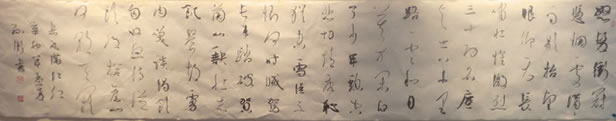 怒髮衝冠
憑闌處瀟
雨歇抬望
眼仰天長
嘯壯懷激烈
三十功名塵
土八千里
路雲和月
莫等閒白
了少年頭空
悲切靖康恥
猶未雪臣子
恨何時滅駕
長車踏破賀
蘭山缺壯志
飢餐胡虜
肉笑談渴飲
匈奴血待從
頭收拾舊山
河朝天闕
岳飛滿江紅
書